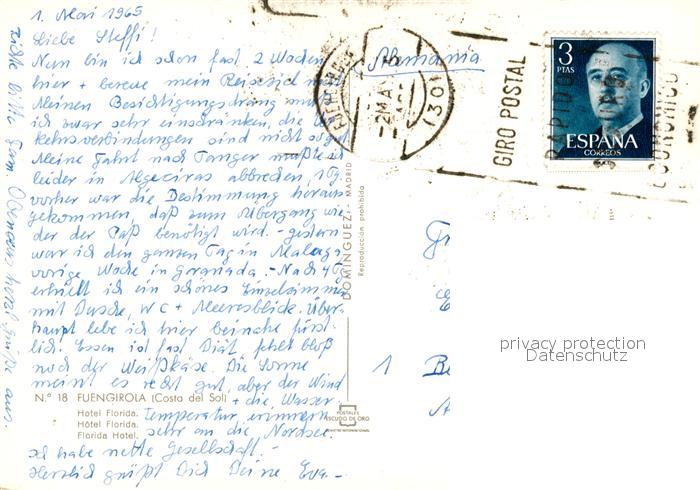 1. Mai 1965
Liebe Steffi!
Nun bin ich schon fast 2 Wochen
hier + bereue mein Reiseziel n
Meinen Besichtigungsdrang mu
ich zwar sehr einschränken, die
kehrsverbindungen sind nicht so
Meine Fahrt nach Tanger mußte i
leider in Algeciras abbrechen, 1 Tg
vorher war die Bestimmung heraus
gekommen, daß zum Übergang wie
der der Paß benötigt wird. - gestern
war ich den ganzen Tag in Malaga,
vorige Woche in Granada. - Nach 4 Tg
erhielt ich ein schönes Einzelzimme
mit Dusche, WC + Meeresblick. Über-
haupt lebe ich hier beinahe fürst-
lich. Essen ist fast Diät, fehlt bloß
noch der Weißkäse. Die Sonne
meint es recht gut, aber der Wind
+ die Wasser-
Temperatur erinnern
sehr an die Nordsee.
Ich habe nette Gesellschaft. -
Herzlich grüßt Dich Deine Eva. -
Richte bitte Fam. herzl. Grüße aus.
N.º 18 FUENGIROLA (Costa del Sol)
Hotel Florida.
Hôtel Florida.
Florida Hotel.
DOMINGUEZ - MADRID
Reproducción prohibida
POSTALES
ESCUDO DE ORO
Alemania
GIRO POSTAL
RAPIDO
ECONOMICO
3
PTAS
ESPAÑA
CORREOS
1
privacy protection
Datenschutz